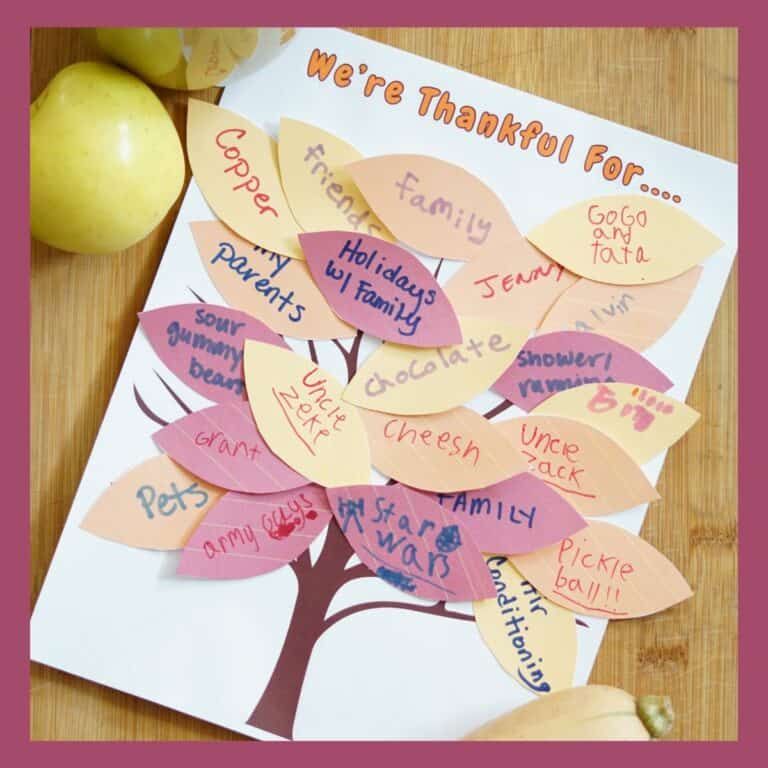 We're Thankful For....
Copper
friends
family
GoGo
and
tata
my
parents
Holidays
w/ Family
JENNY
alvin
sour
gummy
bears
chocolate
shower/
running
Uncle
Zeke
Grant
Cheesh
Uncle
Zack
Pets
army guys
Star
wars
FAMILY
Pickle
ball!!
Air
Conditioning